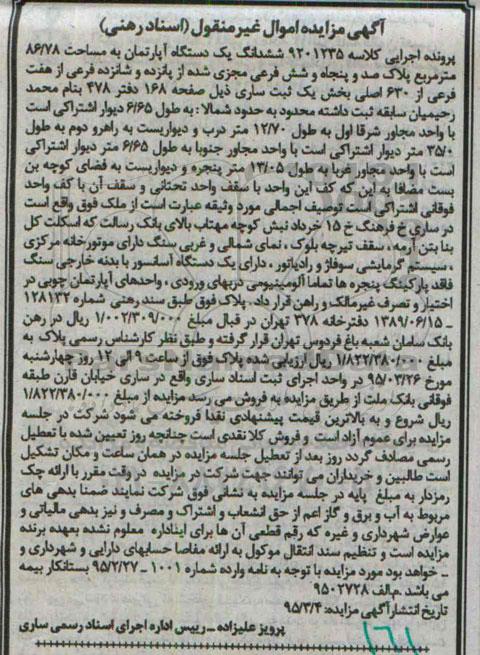 آگهی مزایده اموال غیر منقول (اسناد رهنی)
پرونده اجرایی کلاسه ۹۲۰۱۲۳۵ ششدانگ یک دستگاه آپارتمان به مساحت ۸۶/۷۸
مترمربع پلاک صد و پنجاه و شش فرعی مجزی شده از پانزده و شانزده فرعی از هفت
فرعی از ۶۳۰ اصلی بخش یک ثبت ساری ذیل صفحه ۱۶۸ دفتر ۴۷۸ بنام محمد
رحیمیان سابقه ثبت داشته محدود به حدود شمالا : به طول ۶/۶۵ دیوار اشتراکی است
با واحد مجاور شرقا اول به طول ۱۲/۷۰ متر درب و دیواریست به راهرو دوم به طول
۳۵/۰ متر دیوار اشتراکی است با واحد مجاور جنوبا به طول ۶/۶۵ متر دیوار اشتراکی
است با واحد مجاور غربا به طول ۱۳/۰۵ متر پنجره و دیواریست به فضای کوچه بن
بست مضافا به این که کف این واحد با سقف واحد تحتانی و سقف آن با کف واحد
فوقانی اشتراکی است توصیف اجمالی مورد وثیقه عبارت است از ملک فوق واقع است
در ساری خ فرهنگ خ ۱۵ خرداد نبش کوچه مهتاب بالای بانک رسالت که اسکلت کل
بنا بتن آرمه ، سقف تیرچه بلوک ، نمای شمالی و غربی سنگ دارای موتورخانه مرکزی
، سیستم گرمایشی سوفاژ و رادیاتور ، دارای یک دستگاه آسانسور با بدنه خارجی سنگ
فاقد پارکینگ پنجره ها تماما آلومینیومی دربهای ورودی ، واحدهای آپارتمان چوبی در
اختیار و تصرف غیرمالک و راهن قرار داد . پلاک فوق طبق سند رهنی شماره ۱۲۸۱۳۲
ـ ۱۳۸۹/۰۶/۱۵ دفترخانه ۳۷۸ تهران در قبال مبلغ ۱/۰۰۲/۳۰۹/۰۰۰ ریال در رهن
بانک سامان شعبه باغ فردوس تهران قرار گرفته و طبق نظر کارشناس رسمی پلاک به
مبلغ ۱/۸۲۲/۳۸۰/۰۰۰ ریال ارزیابی شده پلاک فوق از ساعت ۹ الی ۱۲ روز چهارشنبه
مورخ ۹۵/۰۳/۲۶ در واحد اجرای ثبت اسناد ساری واقع در ساری خیابان قارن طبقه
فوقانی بانک ملت از طریق مزایده به فروش می رسد مزایده از مبلغ ۱/۸۲۲/۳۸۰/۰۰۰
ریال شروع و به بالاترین قیمت پیشنهادی نقدا فروخته می شود شرکت در جلسه
مزایده برای عموم آزاد است و فروش کلا نقدی است چنانچه روز تعیین شده با تعطیل
رسمی مصادف گردد روز بعد از تعطیل جلسه مزایده در همان ساعت و مکان تشکیل
است طالبین و خریداران می توانند جهت شرکت در مزایده در وقت مقرر با ارائه چک
رمزدار به مبلغ پایه در جلسه مزایده به نشانی فوق شرکت نمایند ضمنا بدهی های
مربوط به آب و برق و گاز اعم از حق انشعاب و اشتراک و مصرف و نیز بدهی مالیاتی و
عوارض شهرداری و غیره که رقم قطعی آن ها برای اداره معلوم نشده بعهده برنده
مزایده است و تنظیم سند انتقال موکول به ارائه مفاصا حسابهای دارایی و شهرداری و
ـ خواهد بود مورد مزایده با توجه به نامه وارده شماره ۱۰۰۱ ـ ۹۵/۲/۲۷ بستانکار بیمه
می باشد .م.الف ۹۵۰۲۷۲۸
تاریخ انتشار آگهی مزایده: ۹۵/۳/۴
پرویز علیزاده ـ رییس اداره اجرای اسناد رسمی ساری